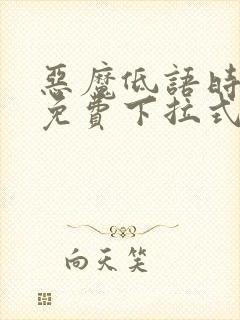 惡魔低語時
免費下拉式
向天笑